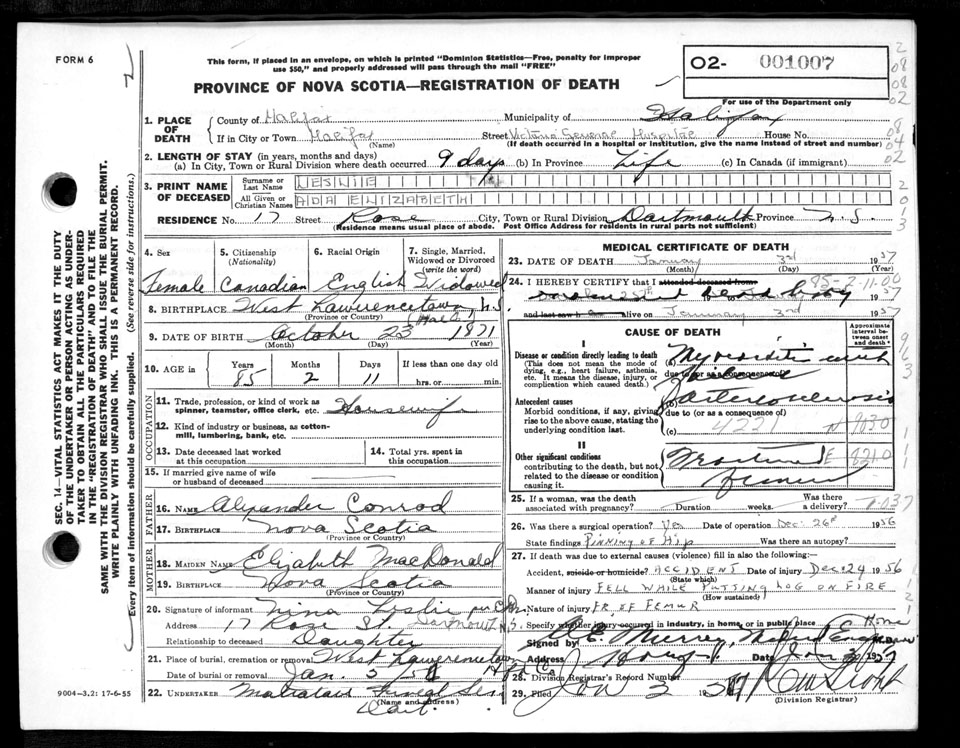 FORM 6
This form, if placed in an envelope, on which is printed "Dominion Statistics—Free, penalty for improper
use $50," and properly addressed will pass through the mail "FREE"
O2- 001007
PROVINCE OF NOVA SCOTIA—REGISTRATION OF DEATH
For use of the Department only
1. PLACE OF DEATH
County of Halifax Municipality of Halifax
If in City or Town Halifax Street Victoria General Hospital House No.
(Name) (If death occurred in a hospital or institution, give the name instead of street and number)
2. LENGTH OF STAY (in years, months and days)
(a) In City, Town or Rural Division where death occurred 9 days (b) In Province Life (c) In Canada (if immigrant)
3. PRINT NAME OF DECEASED
Surname or Last Name LESLIE
All Given or Christian Names ADA ELIZABETH
RESIDENCE No. 17 Street Rose City, Town or Rural Division Dartmouth Province N.S.
(Residence means usual place of abode. Post Office Address for residents in rural parts not sufficient)
4. Sex
5. Citizenship (Nationality)
6. Racial Origin
7. Single, Married, Widowed or Divorced (write the word)
Female Canadian English Widowed
8. BIRTHPLACE West Lawrencetown, N.S.
(Province or Country)
9. DATE OF BIRTH October 23 1871
(Month) (Day) (Year)
10. AGE in Years Months Days If less than one day old
85 2 11 hrs. or min.
OCCUPATION
11. Trade, profession or kind of work as
spinner, teamster, office clerk, etc. Housewife
12. Kind of industry or business, as cotton-
mill, lumbering, bank, etc.
13. Date deceased last worked
at this occupation
14. Total yrs. spent in
this occupation
15. If married give name of wife
or husband of deceased
FATHER
16. NAME Alexander Conrod
17. BIRTHPLACE Nova Scotia
(Province or Country)
MOTHER
18. MAIDEN NAME Elizabeth MacDonald
19. BIRTHPLACE Nova Scotia
(Province or Country)
20. Signature of informant Nina Leslie
Address 17 Rose St. Dartmouth N.S.
Relationship to deceased Daughter
21. Place of burial, cremation or removal West Lawrencetown
Date of burial or removal Jan. 5
22. UNDERTAKER
(Name and address)
Dart.
MEDICAL CERTIFICATE OF DEATH
23. DATE OF DEATH January 3rd 1957
(Month) (Day) (Year)
24. I HEREBY CERTIFY that I attended deceased from
85-2-11.00
1957
and last saw h alive on January 3rd 1957
CAUSE OF DEATH
Approximate interval between onset and death
I
Disease or condition directly leading to death
(This does not mean the mode of
dying, e.g., heart failure, asthenia,
etc. It means the disease, injury, or
complication which caused death.)
(a) Myocarditis
due to (or as a consequence of)
Antecedent causes
Morbid conditions, if any, giving
rise to the above cause, stating the
underlying condition last.
(b) arteriosclerosis
due to (or as a consequence of)
(c) 4221 N 9030
II
Other significant conditions
contributing to the death, but not
related to the disease or condition
causing it.
Fractured
femur
25. If a woman, was the death
associated with pregnancy? Duration weeks. Was there a delivery?
26. Was there a surgical operation? Yes Date of operation Dec. 26th 1956
State findings PINNING OF HIP Was there an autopsy?
27. If death was due to external causes (violence) fill in also the following:—
Accident, suicide or homicide? ACCIDENT Date of injury Dec. 24 1956
(State which)
Manner of injury FELL WHILE PUTTING LOG ON FIRE
(How sustained)
Nature of injury FR. OF FEMUR
Specify whether injury occurred in industry, in home, or in public place Home
Signed by Murray
Address Date Jan 3 1957
28. Division Registrar's Record Number
29. Filed Jan 3 1957
(Division Registrar)
SEC. 14—VITAL STATISTICS ACT MAKES IT THE DUTY
OF THE UNDERTAKER OR PERSON ACTING AS UNDER-
TAKER TO OBTAIN ALL THE PARTICULARS REQUIRED
IN THE "REGISTRATION OF DEATH" AND TO FILE THE
SAME WITH THE DIVISION REGISTRAR WHO SHALL ISSUE THE BURIAL PERMIT.
WRITE PLAINLY WITH UNFADING INK. THIS IS A PERMANENT RECORD.
Every item of information should be carefully supplied. (See reverse side for instructions.)
9004—3.2: 17-6-55